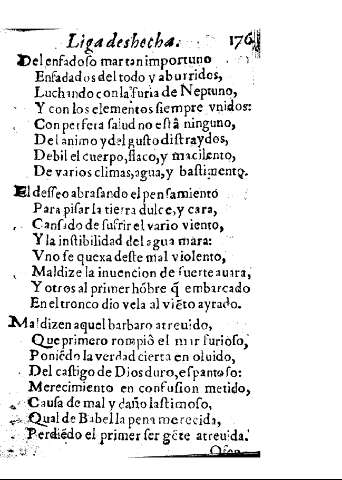 Liga deshecha. 176
Del enfadoso mar tan importuno
Enfadados del todo y aburridos,
Luchando con la furia de Neptuno,
Y con los elementos siempre vnidos:
Con perfeta salud no està ninguno,
Del animo y del gusto distraydos,
Debil el cuerpo, flaco, y macilento,
De varios climas, agua, y bastimento.
El desseo abrasando el pensamiento
Para pisar la tierra dulce, y cara,
Cansado de sufrir el vario viento,
Y la instibilidad del agua mara:
Vno se quexa deste mal violento,
Maldize la inuencion de suerte auara,
Y otros al primer hõbre q̃ embarcado
En el tronco dio vela al viẽto ayrado.
Maldizen aquel barbaro atreuido,
Que primero rompiò el mar furioso,
Poniẽdo la verdad cierta en oluido,
Del castigo de Dios duro, espantoso:
Merecimiento en confusion metido,
Causa de mal y daño lastimoso,
Qual de Babella pena merecida,
Perdiẽdo el primer ser gẽte atreuida.